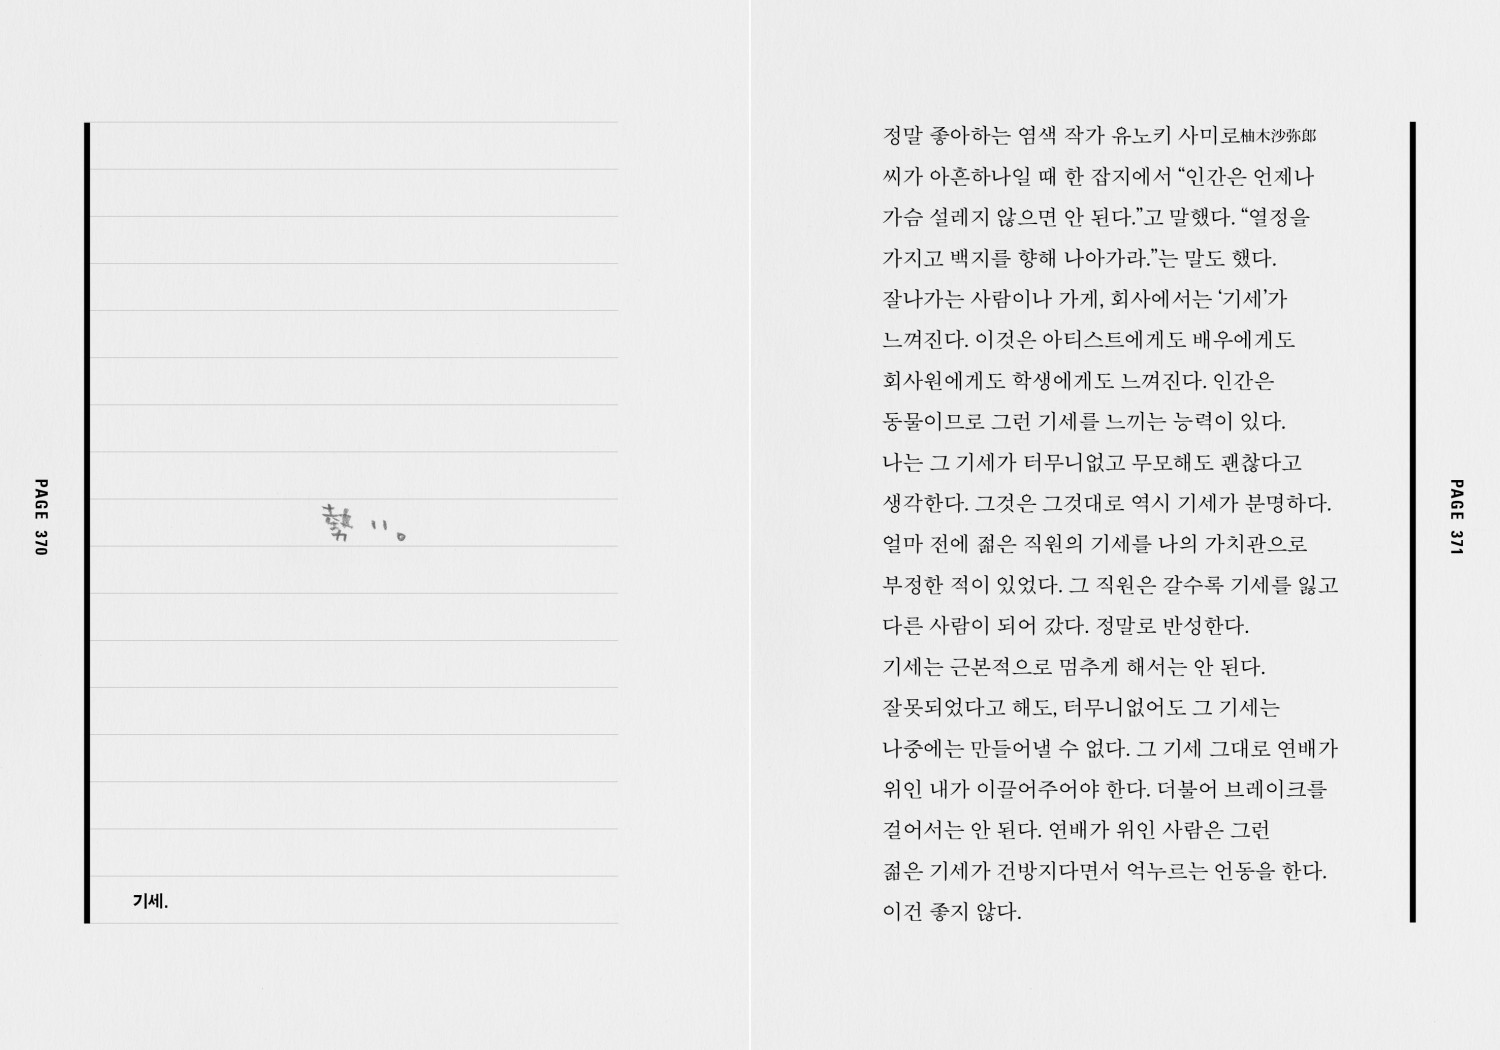 PAGE 370
勢い。
기세.
정말 좋아하는 염색 작가 유노키 사미로柚木沙弥郎
씨가 아흔하나일 때 한 잡지에서 “인간은 언제나
가슴 설레지 않으면 안 된다.”고 말했다. “열정을
가지고 백지를 향해 나아가라.”는 말도 했다.
잘나가는 사람이나 가게, 회사에서는 ‘기세’가
느껴진다. 이것은 아티스트에게도 배우에게도
회사원에게도 학생에게도 느껴진다. 인간은
동물이므로 그런 기세를 느끼는 능력이 있다.
나는 그 기세가 터무니없고 무모해도 괜찮다고
생각한다. 그것은 그것대로 역시 기세가 분명하다.
얼마 전에 젊은 직원의 기세를 나의 가치관으로
부정한 적이 있었다. 그 직원은 갈수록 기세를 잃고
다른 사람이 되어 갔다. 정말로 반성한다.
기세는 근본적으로 멈추게 해서는 안 된다.
잘못되었다고 해도, 터무니없어도 그 기세는
나중에는 만들어낼 수 없다. 그 기세 그대로 연배가
위인 내가 이끌어주어야 한다. 더불어 브레이크를
걸어서는 안 된다. 연배가 위인 사람은 그런
젊은 기세가 건방지다면서 억누르는 언동을 한다.
이건 좋지 않다.
PAGE 371